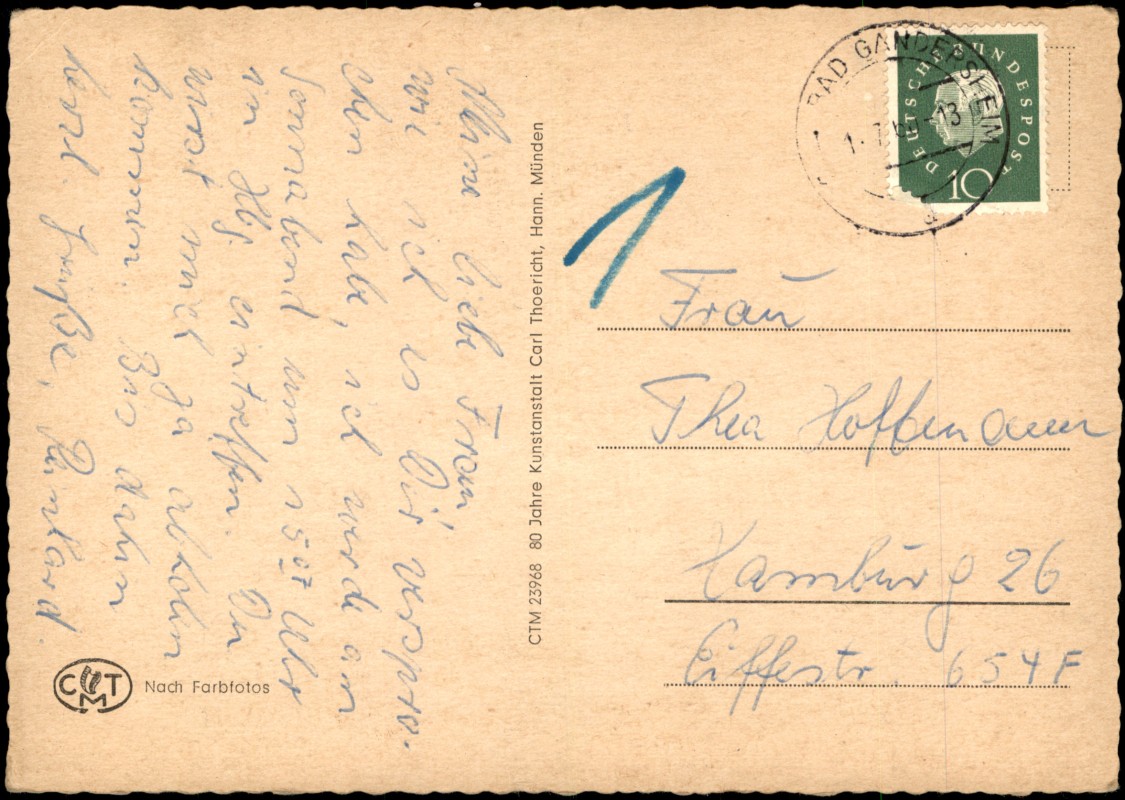 Meine liebe Frau!
Wie ich es Dir verspro-
chen habe, ich werde am
Sonnabend um 15 07 Uhr
in Hbg. eintreffen. Du
wirst mich ja abholen
kommen Bis dahin
herzl. Grüße,
CTM 23968 80 Jahre Kunstanstalt Carl Thoericht, Hann. Münden
CTM
Nach Farbfotos
BAD GANDERSHEIM
1. 7. 60-13
a
DEUTSCHE BUNDESPOST
10
1
Frau
Thea Hoffmann
Hamburg 26
Eiffestr. 654 F